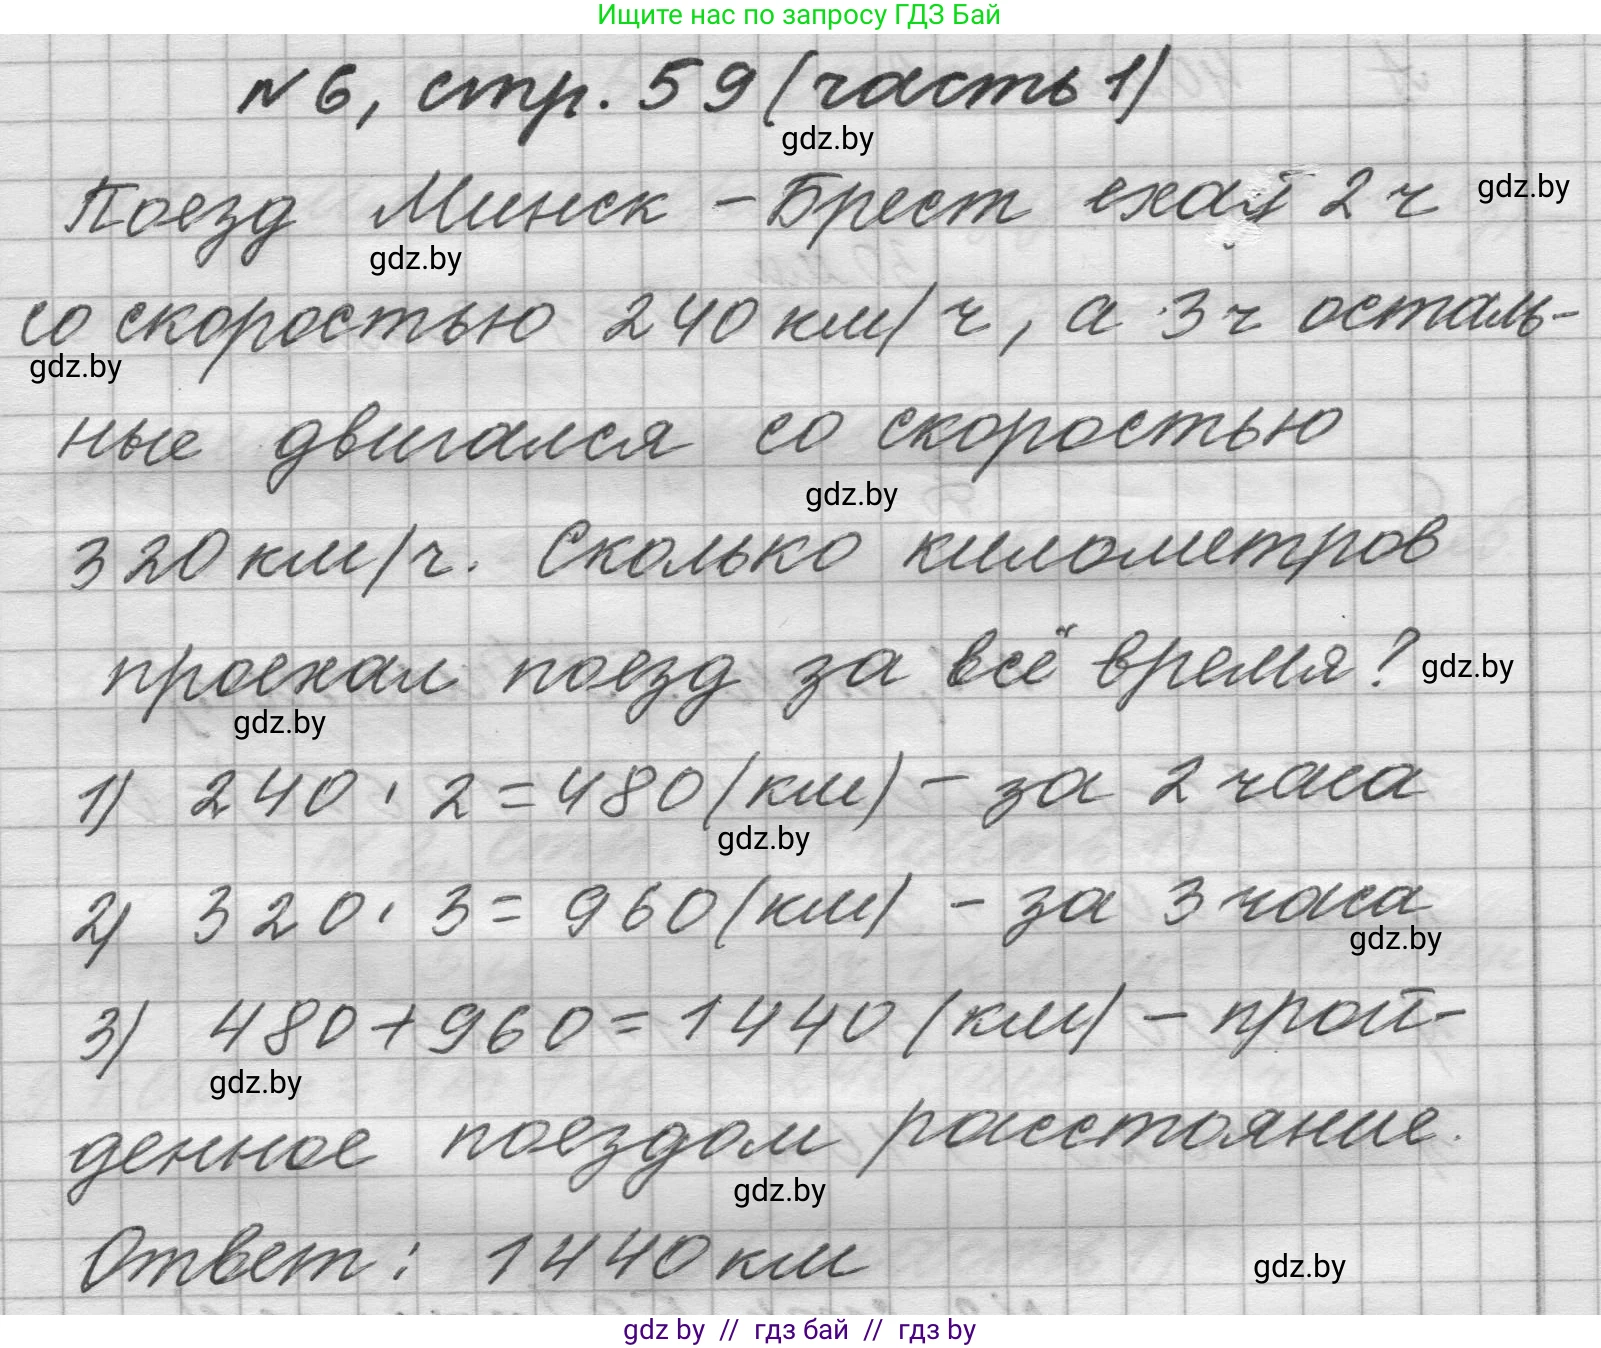 Ищите нас по запросу ГДЗ Бай
№6, стр. 59 (часть 1)
gdz.by
Поезд Минск - Брест ехал 2 ч
gdz.by
gdz.by
со скоростью 240 км/ч, а 3 ч осталь-
gdz.by
ные двигался со скоростью
gdz.by
320 км/ч. Сколько километров
проехал поезд за всё время?
gdz.by
gdz.by
1) 240 · 2 = 480 (км) - за 2 часа
gdz.by
2) 320 · 3 = 960 (км) - за 3 часа
gdz.by
3) 480 + 960 = 1440 (км) - прой-
gdz.by
денное поездом расстояние.
gdz.by
Ответ: 1440 км
gdz.by
gdz by // гдз бай // гдз by